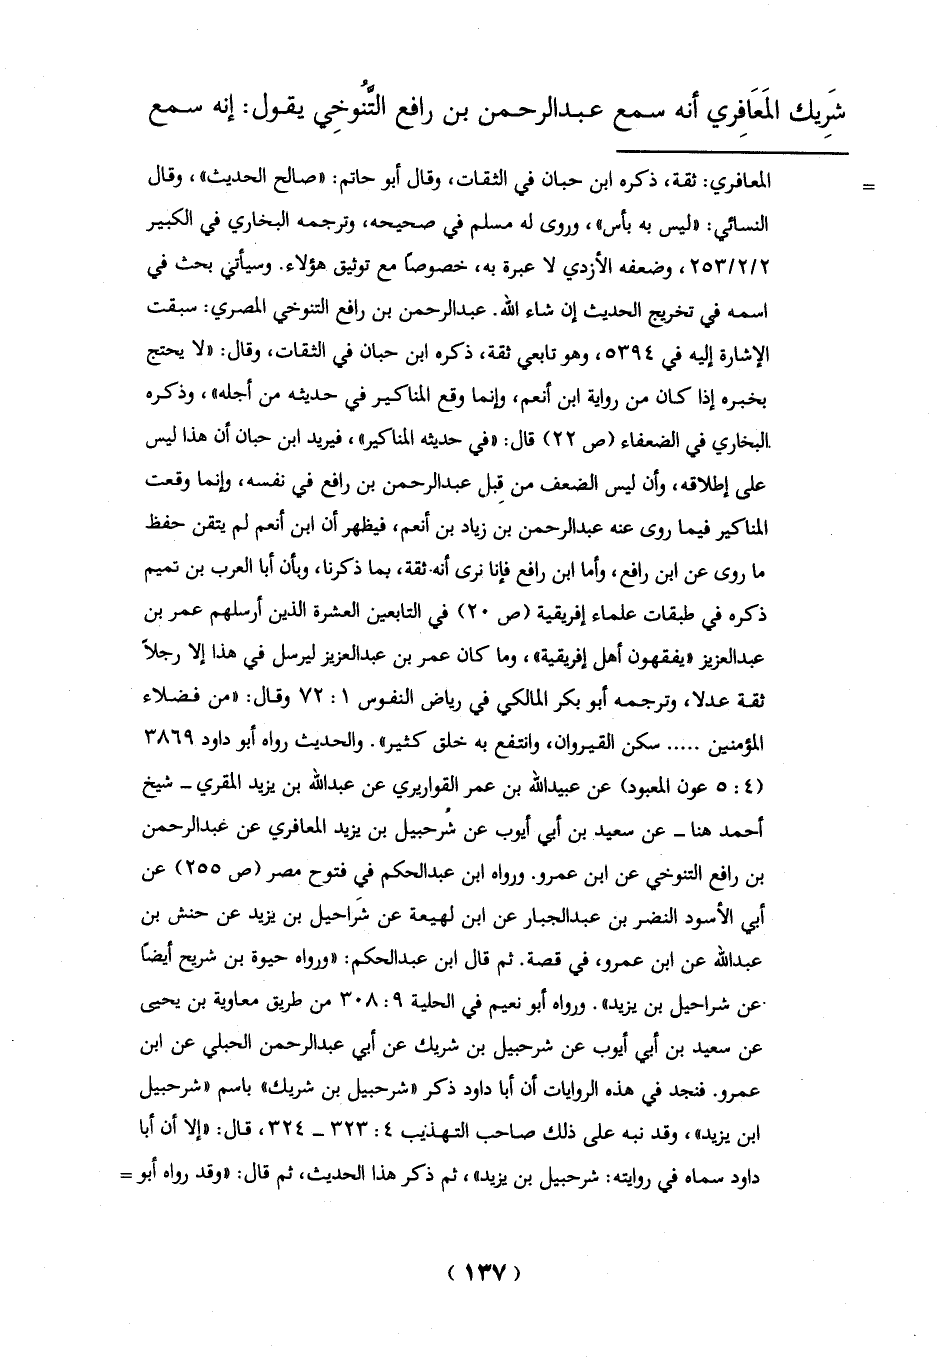 شَرِيك المَعَافِري أنه سمع عبدالرحمن بن رافع التَّنُوخِي يقول: إنه سمع
= المعافري: ثقة، ذكره ابن حبان في الثقات، وقال أبو حاتم: «صالح الحديث»، وقال
النسائي: «ليس به بأس»، وروى له مسلم في صحيحه، وترجمه البخاري في الكبير
٢٥٣/٢/٢، وضعفه الأزدي لا عبرة به، خصوصاً مع توثيق هؤلاء. وسيأتي بحث في
اسمه في تخريج الحديث إن شاء الله. عبدالرحمن بن رافع التنوخي المصري: سبقت
الإشارة إليه في ٥٣٩٤، وهو تابعي ثقة، ذكره ابن حبان في الثقات، وقال: «لا يحتج
بخبره إذا كان من رواية ابن أنعم، وإنما وقع المناكير في حديثه من أجله»، وذكره
البخاري في الضعفاء (ص ٢٢) قال: «في حديثه المناكير»، فيريد ابن حبان أن هذا ليس
على إطلاقه، وأن ليس الضعف من قِبل عبدالرحمن بن رافع في نفسه، وإنما وقعت
المناكير فيما روى عنه عبدالرحمن بن زياد بن أنعم، فيظهر أن ابن أنعم لم يتقن حفظ
ما روى عن ابن رافع، وأما ابن رافع فإنا نرى أنه ثقة، بما ذكرنا، وبأن أبا العرب بن تميم
ذكره في طبقات علماء إفريقية (ص ٢٠) في التابعين العشرة الذين أرسلهم عمر بن
عبدالعزيز «يفقهون أهل إفريقية»، وما كان عمر بن عبدالعزيز ليرسل في هذا إلا رجلاً
ثقة عدلا، وترجمه أبو بكر المالكي في رياض النفوس ١: ٧٢ وقال: «من فضلاء
المؤمنين ..... سكن القيروان، وانتفع به خلق كثير». والحديث رواه أبو داود ٣٨٦٩
(٤: ٥ عون المعبود) عن عبيدالله بن عمر القواريري عن عبدالله بن يزيد المقري ــ شيخ
أحمد هنا ــ عن سعيد بن أبي أيوب عن شُرحبيل بن يزيد المعافري عن عبدالرحمن
بن رافع التنوخي عن ابن عمرو. ورواه ابن عبدالحكم في فتوح مصر (ص ٢٥٥) عن
أبي الأسود النضر بن عبدالجبار عن ابن لهيعة عن شَراحيل بن يزيد عن حنش بن
عبدالله عن ابن عمرو، في قصة. ثم قال ابن عبدالحكم: «ورواه حيوة بن شريح أيضاً
عن شراحيل بن يزيد». ورواه أبو نعيم في الحلية ٩: ٣٠٨ من طريق معاوية بن يحيى
عن سعيد بن أبي أيوب عن شرحبيل بن شريك عن أبي عبدالرحمن الحبلي عن ابن
عمرو. فنجد في هذه الروايات أن أبا داود ذكر «شرحبيل بن شريك» باسم «شرحبيل
ابن يزيد»، وقد نبه على ذلك صاحب التهذيب ٤: ٣٢٣ ــ ٣٢٤، قال: «إلا أن أبا
داود سماه في روايته: شرحبيل بن يزيد»، ثم ذكر هذا الحديث، ثم قال: «وقد رواه أبو =
(١٣٧)